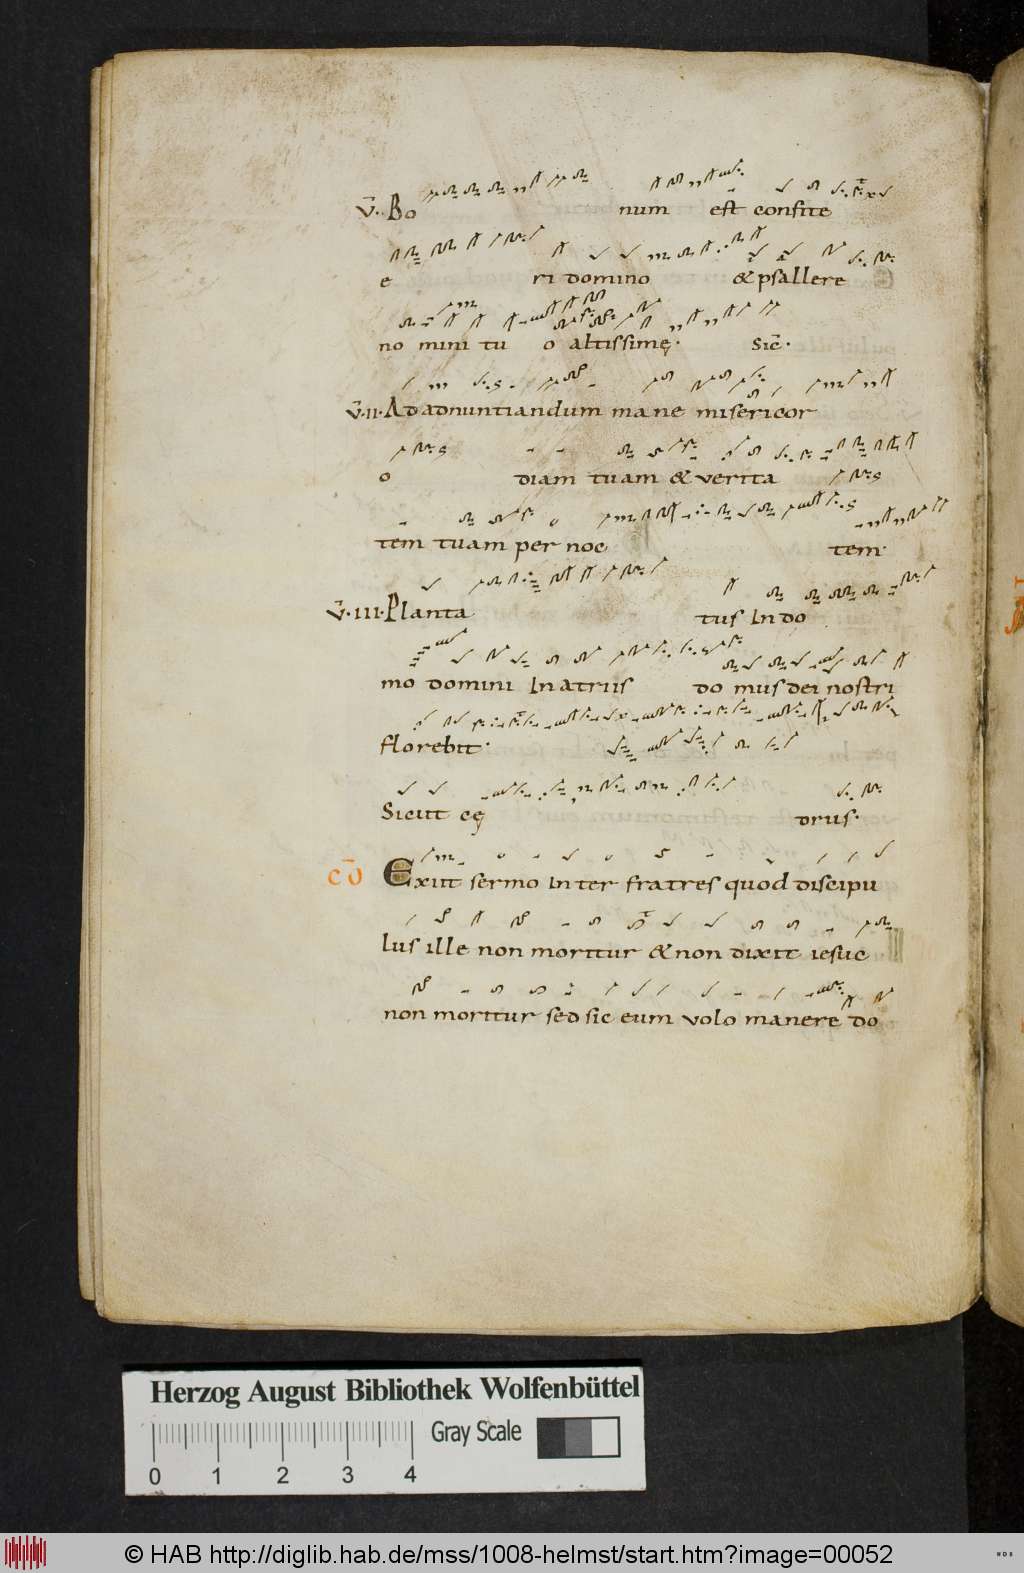 v̄. Bo num est confite
e ri domino & psallere
no mini tu o altissimę. Sic̄.
v̄.II. Ad adnuntiandum mane misericor
o diam tuam & verita
tem tuam per noc tem.
v̄.III. Planta tus In do
mo domini In atriis do mus dei nostri
florebit.
Sicut cę drus.
CŌ Exiit sermo Inter fratres quod discipu
lus ille non moritur & non dixit iesuc
non moritur sed sic eum volo manere do
Herzog August Bibliothek Wolfenbüttel
Gray Scale
0 1 2 3 4
© HAB http://diglib.hab.de/mss/1008-helmst/start.htm?image=00052